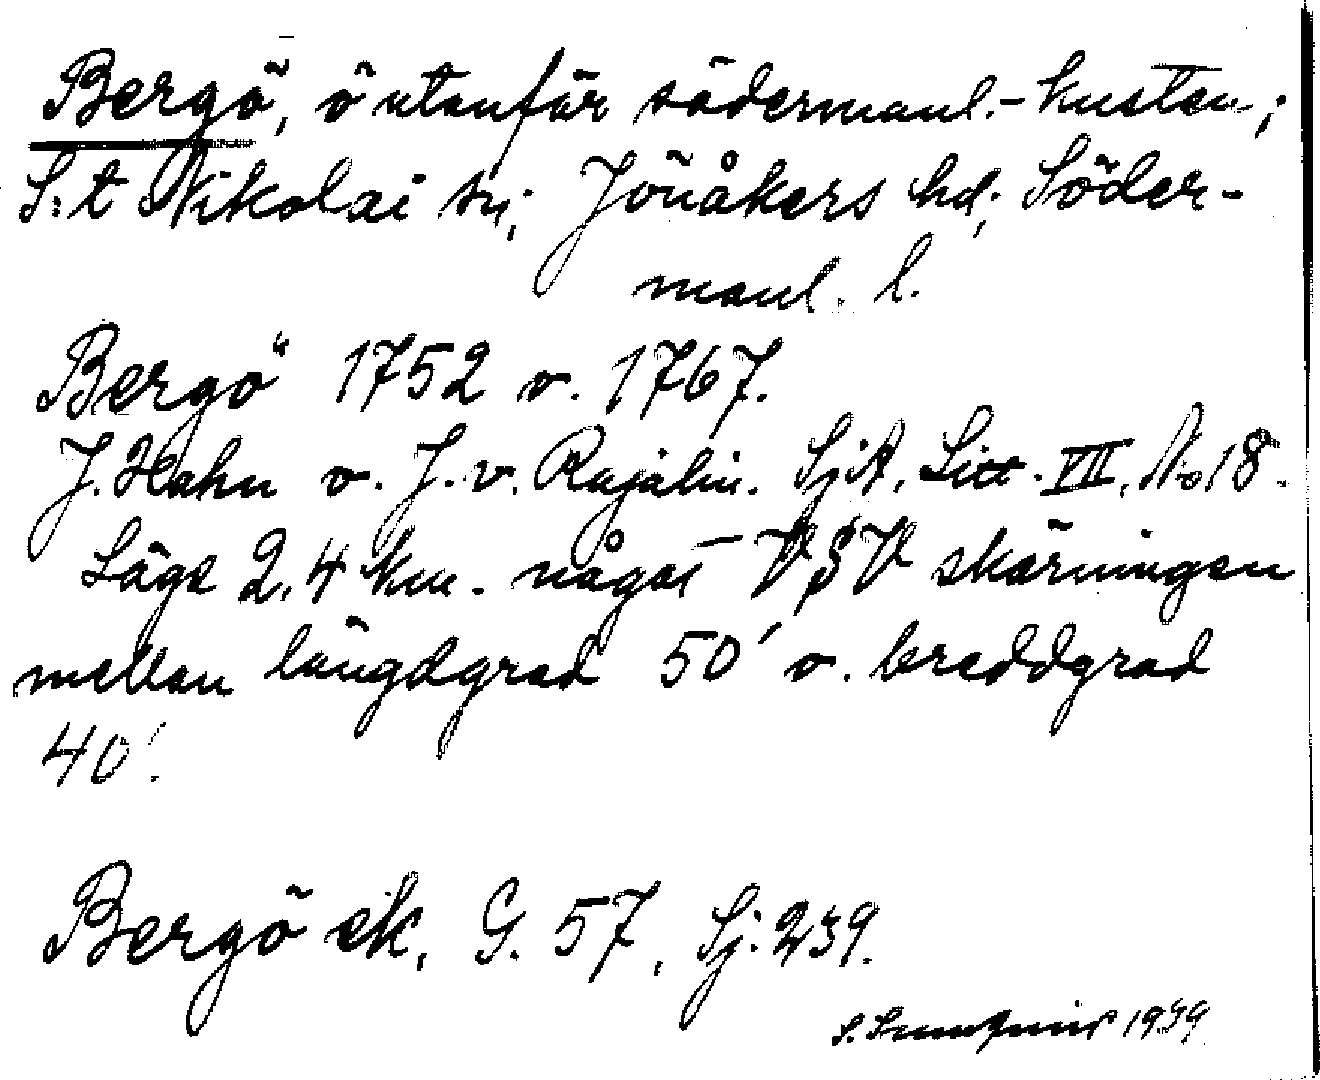 Bergö, ö utanför södermanl.-kusten;
S:t Nikolai sn; Jönåkers hd; Söder-
manl. l.
Bergö 1752 o. 1767.
J. Hahn o. J. v. Rajalin. SjA. Litt. VII. No 18.
Läge 2,4 km. något VSV skärningen
mellan längdgrad 50' o. breddgrad
40'.
Bergö ek. G. 57, Sj. 239.
S. 1939